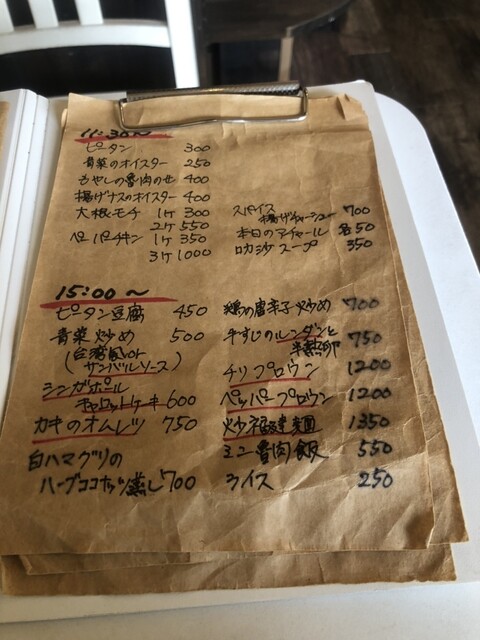 11:30〜
ピータン 300
青菜のオイスター 250
もやしの魯肉のせ 400
揚げナスのオイスター 400
大根モチ 1ヶ 300
2ヶ 550
ペーパーチキン 1ヶ 350
3ヶ 1000
スパイス
揚げチャーシュー 700
本日のアチャール 各50
叻沙スープ 350
15:00〜
ピータン豆腐 450
青菜炒め 500
(台湾風or
サンバルソース)
シンガポール
キャロットケーキ 600
カキのオムレツ 750
白ハマグリの
ハーブココナッツ蒸し 700
鶏の唐辛子炒め 700
牛すじのルンダンと
半熟卵 750
チリプロウン 1200
ペッパープロウン 1200
炒福建麺 1350
ミニ魯肉飯 550
ライス 250